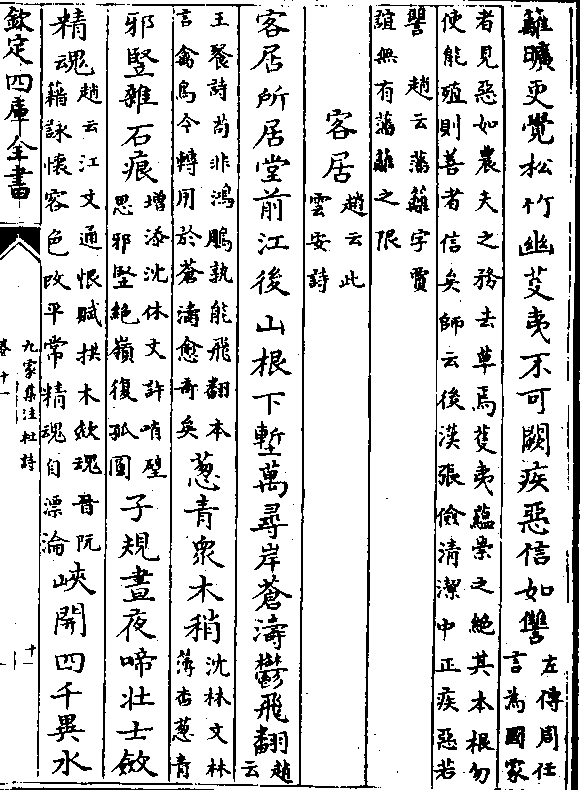 籬曠更覺松竹幽芟夷不可闕疾惡信如讐左傳周任言為國家
者見惡如農夫之務去草焉芟夷蘊崇之絕其本根勿
使能殖則善者信矣師云後漢張儉清潔中正疾惡若
讐趙云藩籬字賈
誼無有藩籬之限
客居趙云此雲安詩
客居所居堂前江後山根下塹萬尋岸蒼濤鬱飛翻趙云
王粲詩苟非鴻鵰孰能飛翻本言禽鳥今轉用於蒼濤愈奇矣葱青衆木稍沈林文林薄杳葱青
邪豎雜石痕增添沈休文許哨壁思邪堅絶嶺復孤圓子規晝夜啼壯士斂
精魂趙云江文通恨賦拱木斂魂晉阮藉詠懷容色改平常精魂自漂淪峽開四千異水
欽定四庫全書
九家集注杜詩
卷十一
十一